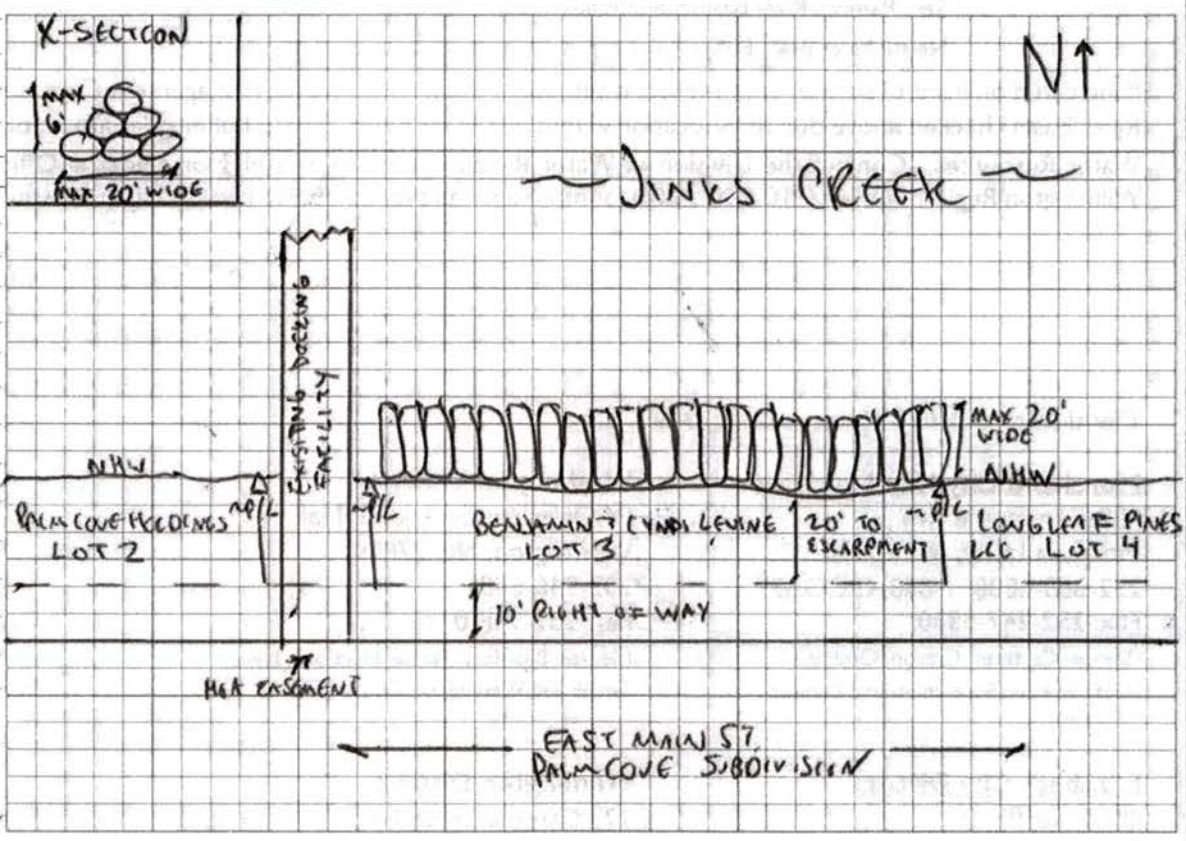 X-SECTION
MAX
6'
MAX 20' WIDE
N
JINKS CREEK
EXISITING DOCKING
FACILITY
MAX 20'
WIDE
NHW
NHW
~P/L
~P/L
~P/L
PALM COVE HOLDINGS
LOT 2
BENJAMIN & CYNDI LEVINE
LOT 3
20' TO
ESCARPMENT
LONGLEAF PINES
LLC LOT 4
10' RIGHT OF WAY
HOA EASMENT
EAST MAIN ST.
PALM COVE SUBDIVISION